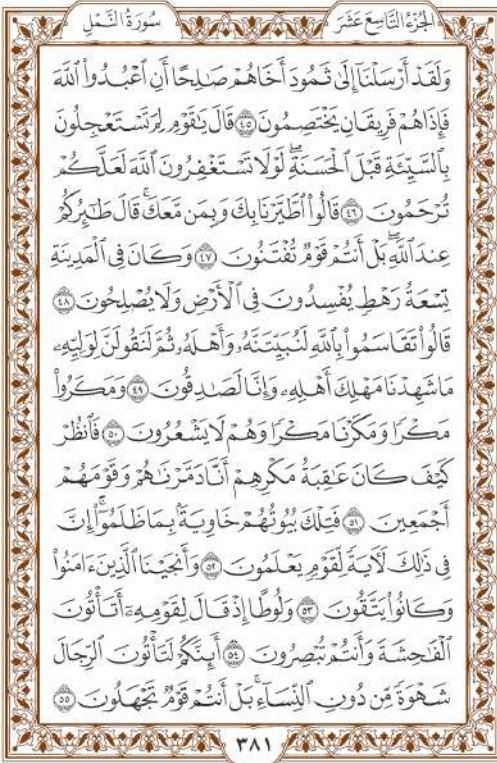 الجُزْءُ التَّاسِعَ عَشَرَ سُورَةُ النَّمْلِ
وَلَقَدْ أَرْسَلْنَآ إِلَىٰ ثَمُودَ أَخَاهُمْ صَٰلِحًا أَنِ ٱعْبُدُوا۟ ٱللَّهَ
فَإِذَا هُمْ فَرِيقَانِ يَخْتَصِمُونَ ٤٥ قَالَ يَٰقَوْمِ لِمَ تَسْتَعْجِلُونَ
بِٱلسَّيِّئَةِ قَبْلَ ٱلْحَسَنَةِ ۖ لَوْلَا تَسْتَغْفِرُونَ ٱللَّهَ لَعَلَّكُمْ
تُرْحَمُونَ ٤٦ قَالُوا۟ ٱطَّيَّرْنَا بِكَ وَبِمَن مَّعَكَ ۚ قَالَ طَٰٓئِرُكُمْ
عِندَ ٱللَّهِ ۖ بَلْ أَنتُمْ قَوْمٌ تُفْتَنُونَ ٤٧ وَكَانَ فِى ٱلْمَدِينَةِ
تِسْعَةُ رَهْطٍ يُفْسِدُونَ فِى ٱلْأَرْضِ وَلَا يُصْلِحُونَ ٤٨
قَالُوا۟ تَقَاسَمُوا۟ بِٱللَّهِ لَنُبَيِّتَنَّهُۥ وَأَهْلَهُۥ ثُمَّ لَنَقُولَنَّ لِوَلِيِّهِۦ
مَا شَهِدْنَا مَهْلِكَ أَهْلِهِۦ وَإِنَّا لَصَٰدِقُونَ ٤٩ وَمَكَرُوا۟
مَكْرًا وَمَكَرْنَا مَكْرًا وَهُمْ لَا يَشْعُرُونَ ٥٠ فَٱنظُرْ
كَيْفَ كَانَ عَٰقِبَةُ مَكْرِهِمْ أَنَّا دَمَّرْنَٰهُمْ وَقَوْمَهُمْ
أَجْمَعِينَ ٥١ فَتِلْكَ بُيُوتُهُمْ خَاوِيَةًۢ بِمَا ظَلَمُوٓا۟ ۗ إِنَّ
فِى ذَٰلِكَ لَءَايَةً لِّقَوْمٍ يَعْلَمُونَ ٥٢ وَأَنجَيْنَا ٱلَّذِينَ ءَامَنُوا۟
وَكَانُوا۟ يَتَّقُونَ ٥٣ وَلُوطًا إِذْ قَالَ لِقَوْمِهِۦٓ أَتَأْتُونَ
ٱلْفَٰحِشَةَ وَأَنتُمْ تُبْصِرُونَ ٥٤ أَئِنَّكُمْ لَتَأْتُونَ ٱلرِّجَالَ
شَهْوَةً مِّن دُونِ ٱلنِّسَآءِ ۚ بَلْ أَنتُمْ قَوْمٌ تَجْهَلُونَ ٥٥
٣٨١